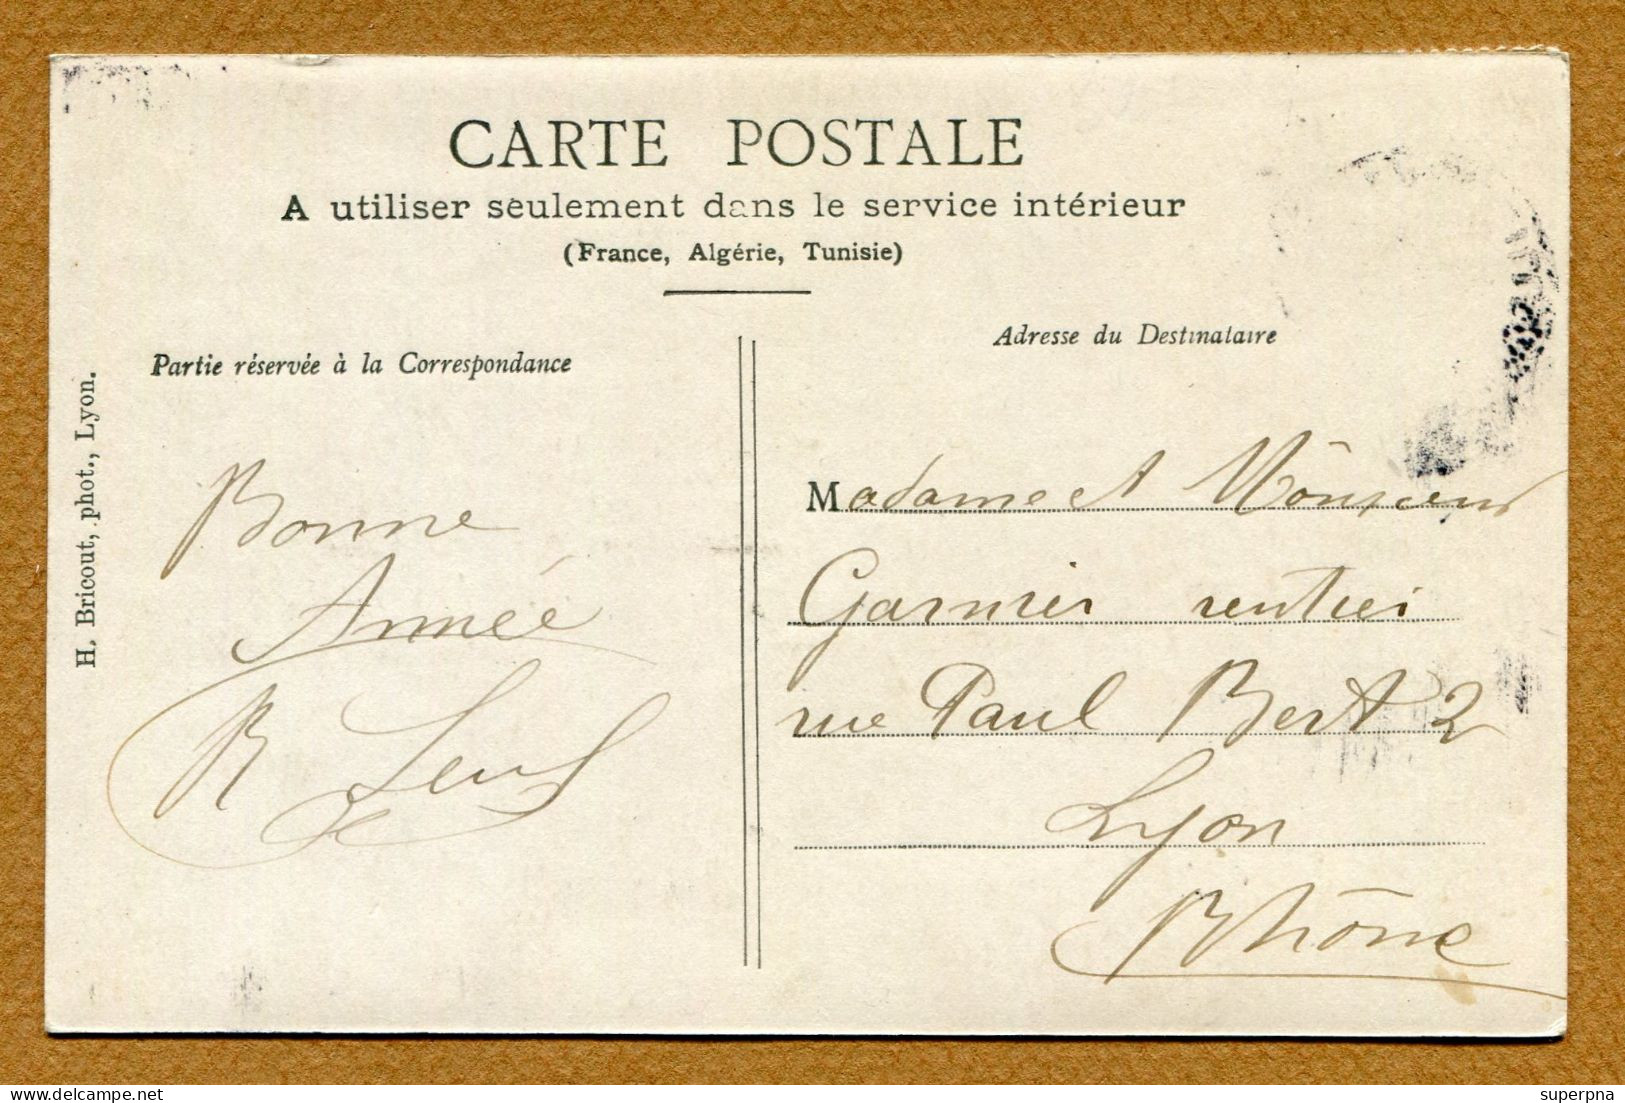 CARTE POSTALE
A utiliser seulement dans le service intérieur
(France, Algérie, Tunisie)
Partie réservée à la Correspondance
Adresse du Destinataire
H. Bricout, phot., Lyon.
Bonne
Année
R
Madame et Monsieur
Garnier rentier
rue Paul Bert 2
Lyon
Rhône
superpna